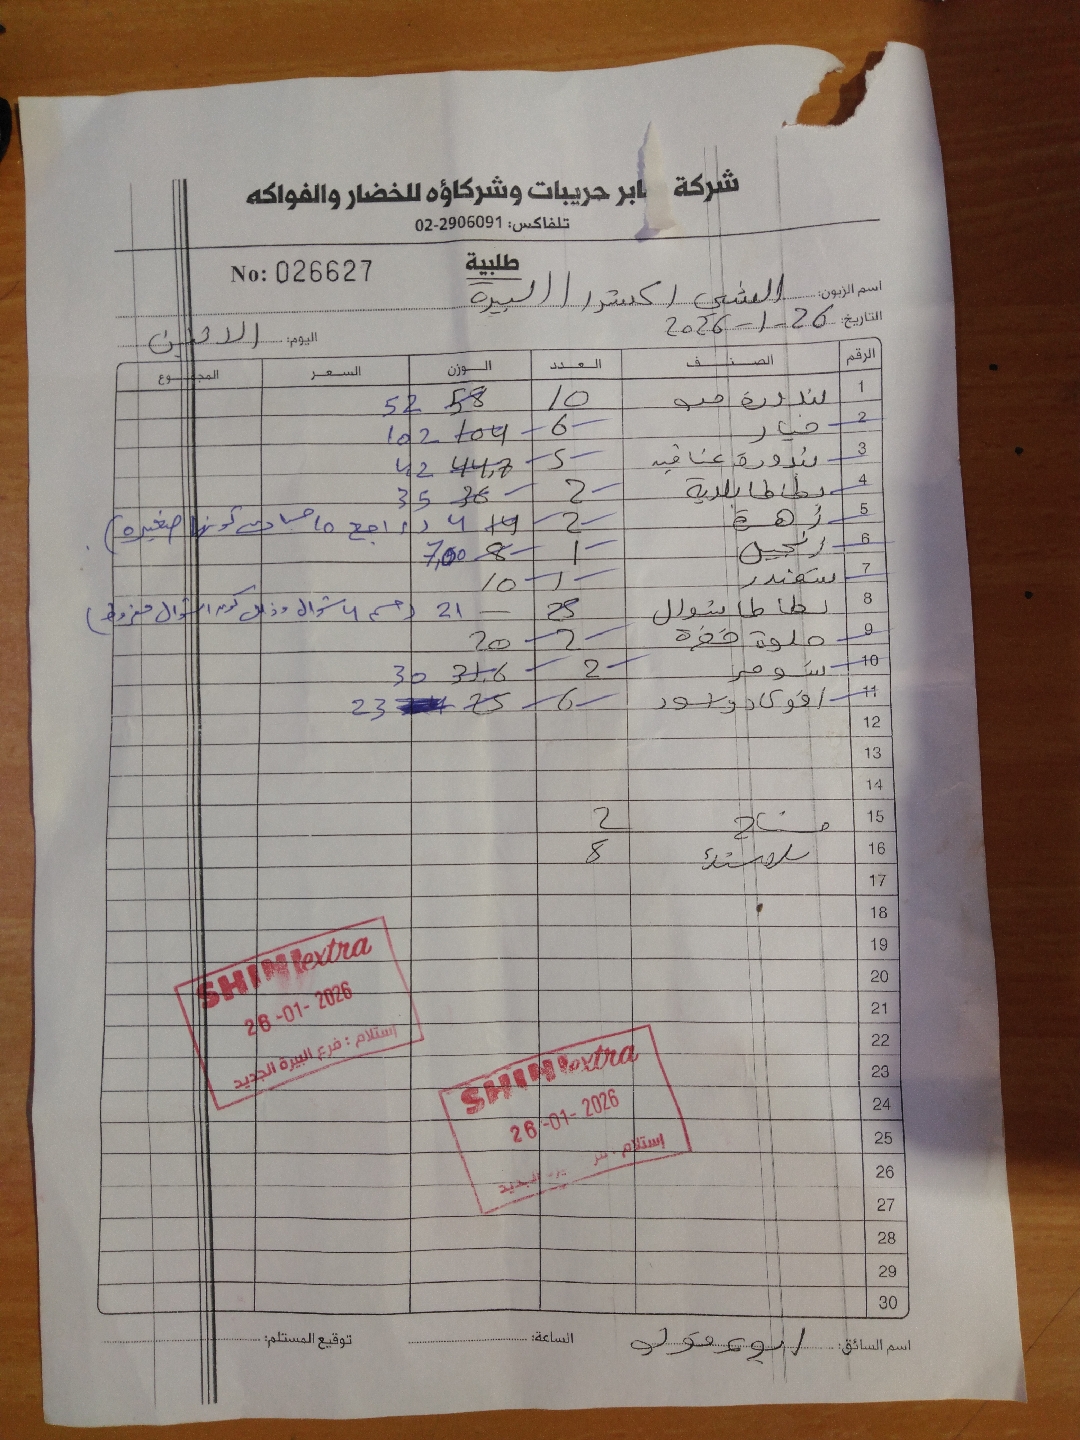 شركة جابر حريبات وشركاؤه للخضار والفواكه
تلفاكس: 02-2906091
طلبية
No: 026627
اسم الزبون: الشني اكسترا البيرة
التاريخ: 26-1-2026
اليوم: الاثنين
الرقم الصنف العدد الوزن السعر المجموع
1 بندورة حبو 10 58 52
2 خيار 6 104 102
3 بندورة عناقيد 5 44,7 42
4 بطاطا بلدية 2 36 35
5 زهرة 2 19 4 (راجع 15 حبات كونها صغيره)
6 زنجبيل 1 8 7,00
7 شمندر 1 10
8 بطاطا شوال 25 21 (خصم 4 شوال وذلك كون الشوال مخزوط)
9 حلوة خضرة 2 20
10 شومر 2 31,6 30
11 افوكادو اسود 6 25 23
12
13
14
15 2
16 8
17
18
19
20
21
22
23
24
25
26
27
28
29
30
SHINI extra
26-01-2026
إستلام: فرع البيرة الجديد
SHINI extra
26-01-2026
إستلام: البيرة الجديد
اسم السائق: ابو
الساعة:
توقيع المستلم: